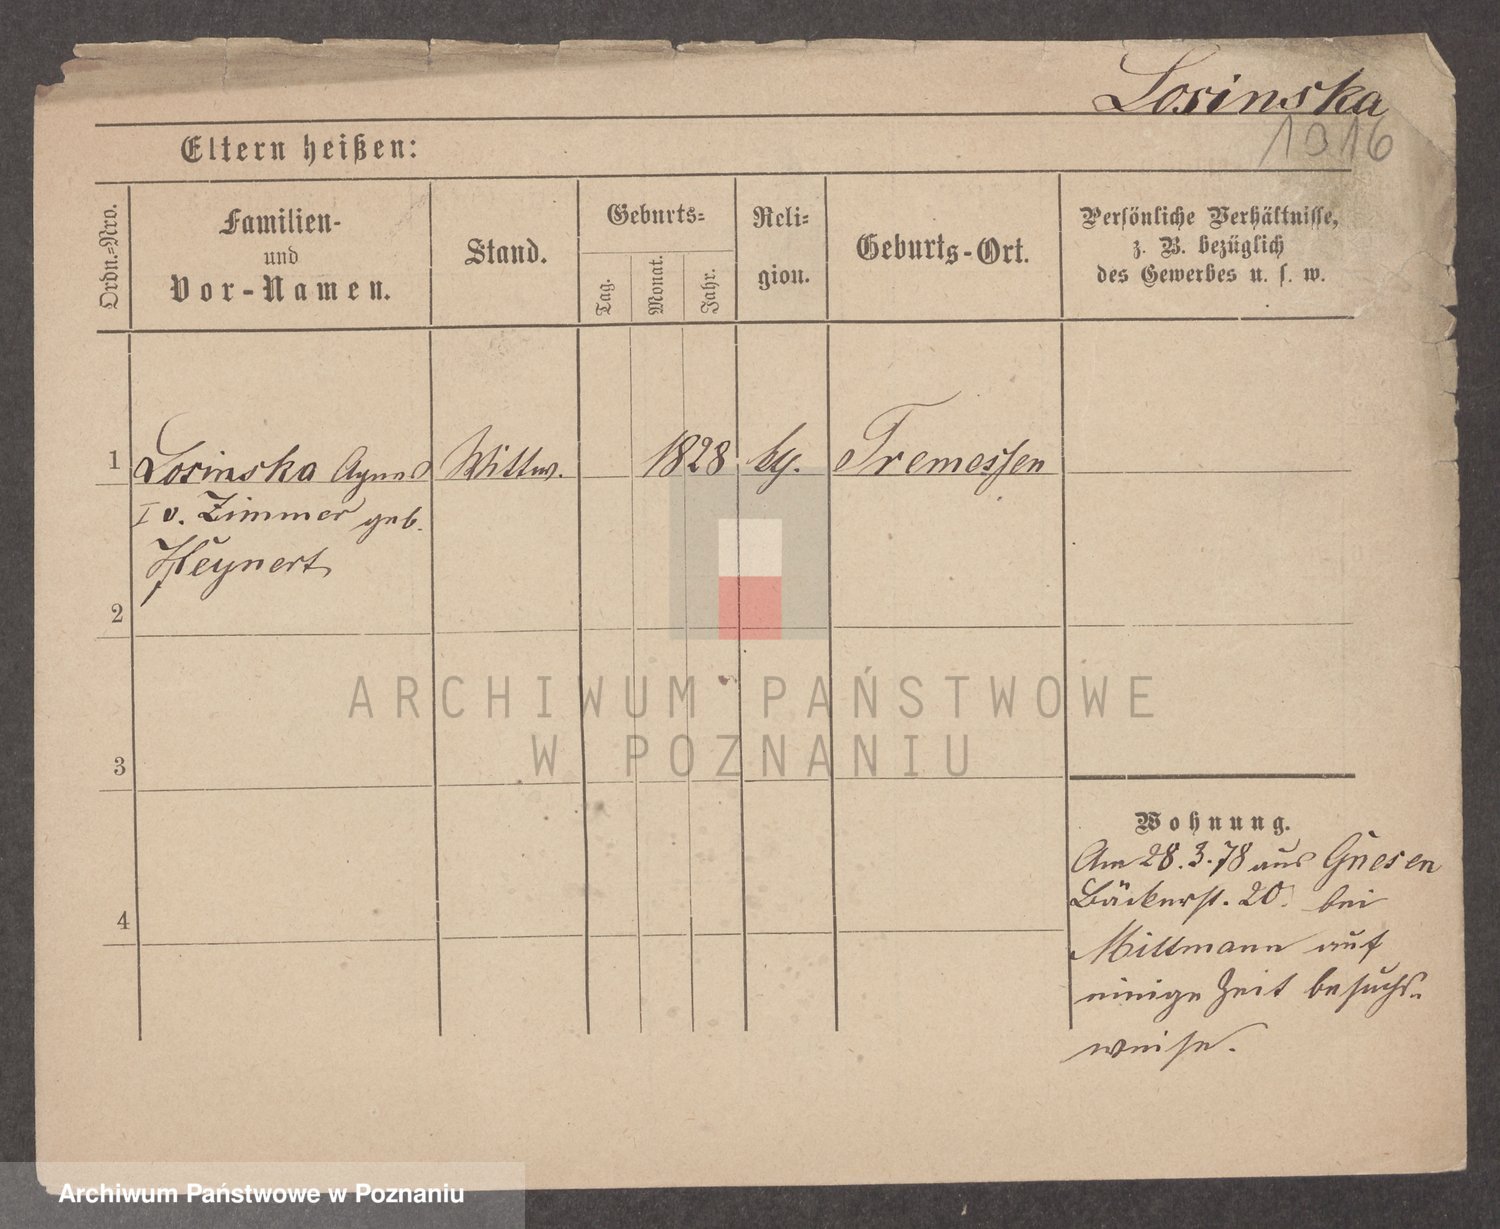 Losinska
1916
Eltern heißen:
Ordn.-Nro.
Familien-
und
Vor-Namen.
Stand.
Geburts-
Tag.
Monat.
Jahr.
Reli-
gion.
Geburts-Ort.
Persönliche Verhältnisse,
z. B. bezüglich
des Gewerbes u. s. w.
1 Losinska Agnes Wittw. 1828 Tremessen
I v. Zimmer geb.
Heynert
2
3
4
Wohnung.
Am 28.3.78 aus Gnesen
Bäckerst. 20. bei
Mittmann auf
einige Zeit besuchs-
weise.
ARCHIWUM PAŃSTWOWE
W POZNANIU
Archiwum Państwowe w Poznaniu